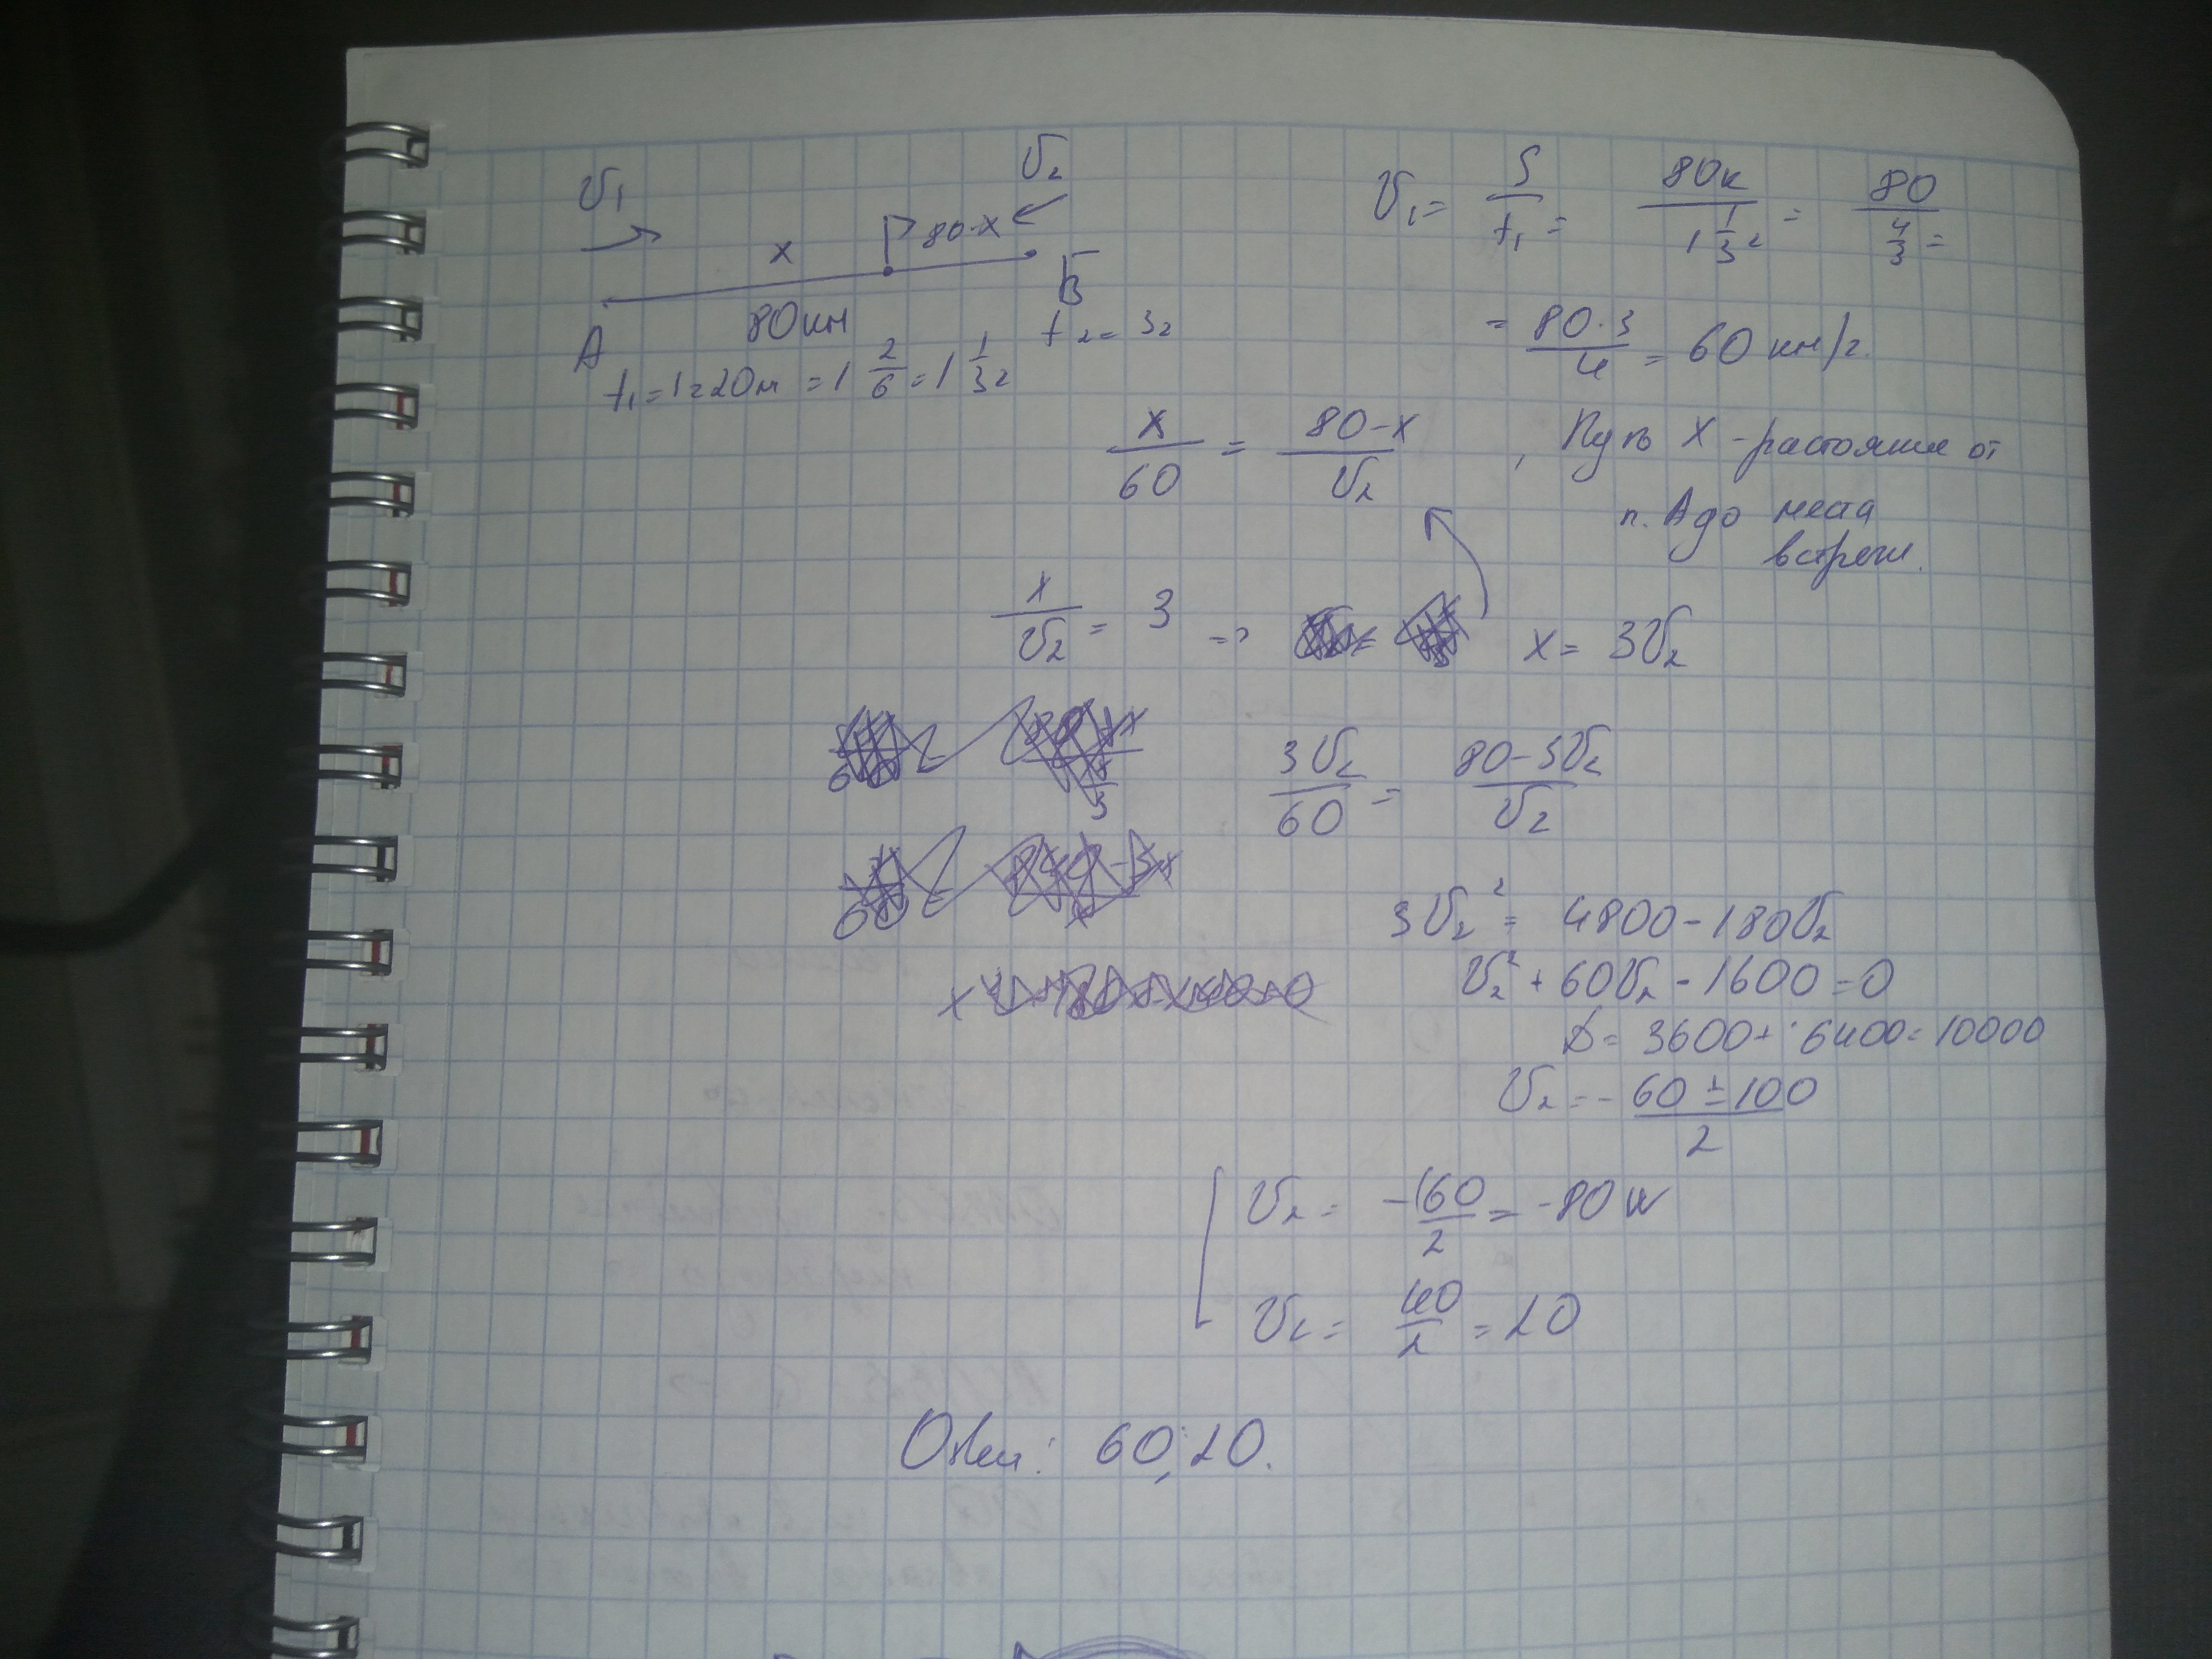 v₁
v₂
x
80-x
A
80 км
В
t₁ = 1г 20м = 1 2/6 = 1 1/3 г
t₂ = 3г
v₁ = S/t₁ = 80к/(1 1/3 г) = 80/(4/3) =
= 80·3/4 = 60 км/г.
x/60 = (80-x)/v₂ , Путь x - растояние от
п. А до места
встречи.
x/v₂ = 3 => x = 3v₂
3v₂/60 = (80-3v₂)/v₂
3v₂² = 4800 - 180v₂
v₂² + 60v₂ - 1600 = 0
D = 3600 + 6400 = 10000
v₂ = (-60 ± 100)/2
v₂ = -160/2 = -80
v₂ = 40/2 = 20
Ответ: 60; 20.